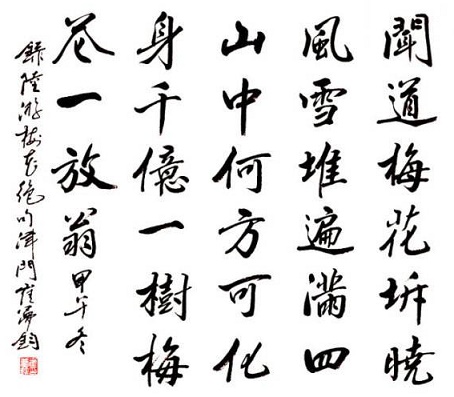 聞道梅花坼曉
風雪堆遍滿四
山中何方可化
身千億一樹梅
花一放翁 甲午冬
錄陸游梅花絕句津門崔鈞